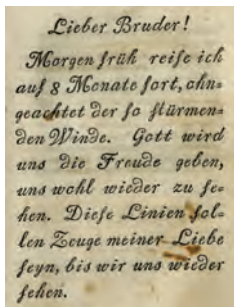 Lieber Bruder!
Morgen früh reiſe ich
auf 8 Monate fort, ohn⸗
geachtet der ſo ſtürmen⸗
den Winde. Gott wird
uns die Freude geben,
uns wohl wieder zu ſe⸗
hen. Dieſe Linien ſol⸗
len Zeuge meiner Liebe
ſeyn, bis wir uns wieder
ſehen.